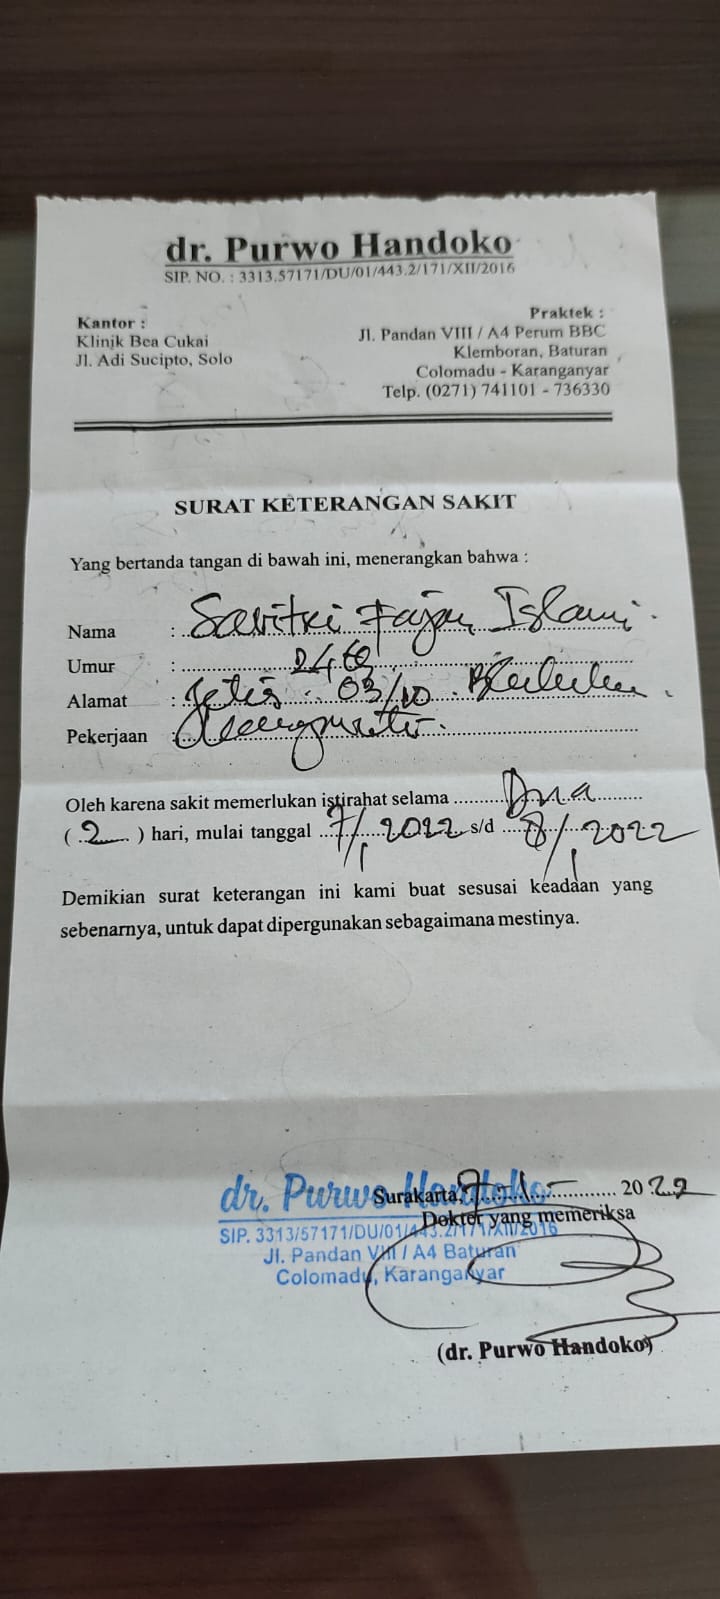 dr. Purwo Handoko
SIP. NO. : 3313.57171/DU/01/443.2/171/XII/2016
Kantor :
Klinik Bea Cukai
Jl. Adi Sucipto, Solo
Praktek :
Jl. Pandan VIII / A4 Perum BBC
Klemboran, Baturan
Colomadu - Karanganyar
Telp. (0271) 741101 - 736330
SURAT KETERANGAN SAKIT
Yang bertanda tangan di bawah ini, menerangkan bahwa :
Nama : Savitri Fajar Islami
Umur : 24
Alamat : Jetis 03/10
Pekerjaan :
Oleh karena sakit memerlukan istirahat selama Dua
( 2 ) hari, mulai tanggal 7/1 2022 s/d 8/1 2022
Demikian surat keterangan ini kami buat sesusai keadaan yang
sebenarnya, untuk dapat dipergunakan sebagaimana mestinya.
Surakarta, 7 - 1 - 2022
Dokter yang memeriksa
dr. Purwo Handoko
SIP. 3313/57171/DU/01/443.2/171/XII/2016
Jl. Pandan VIII / A4 Baturan
Colomadu, Karanganyar
(dr. Purwo Handoko)